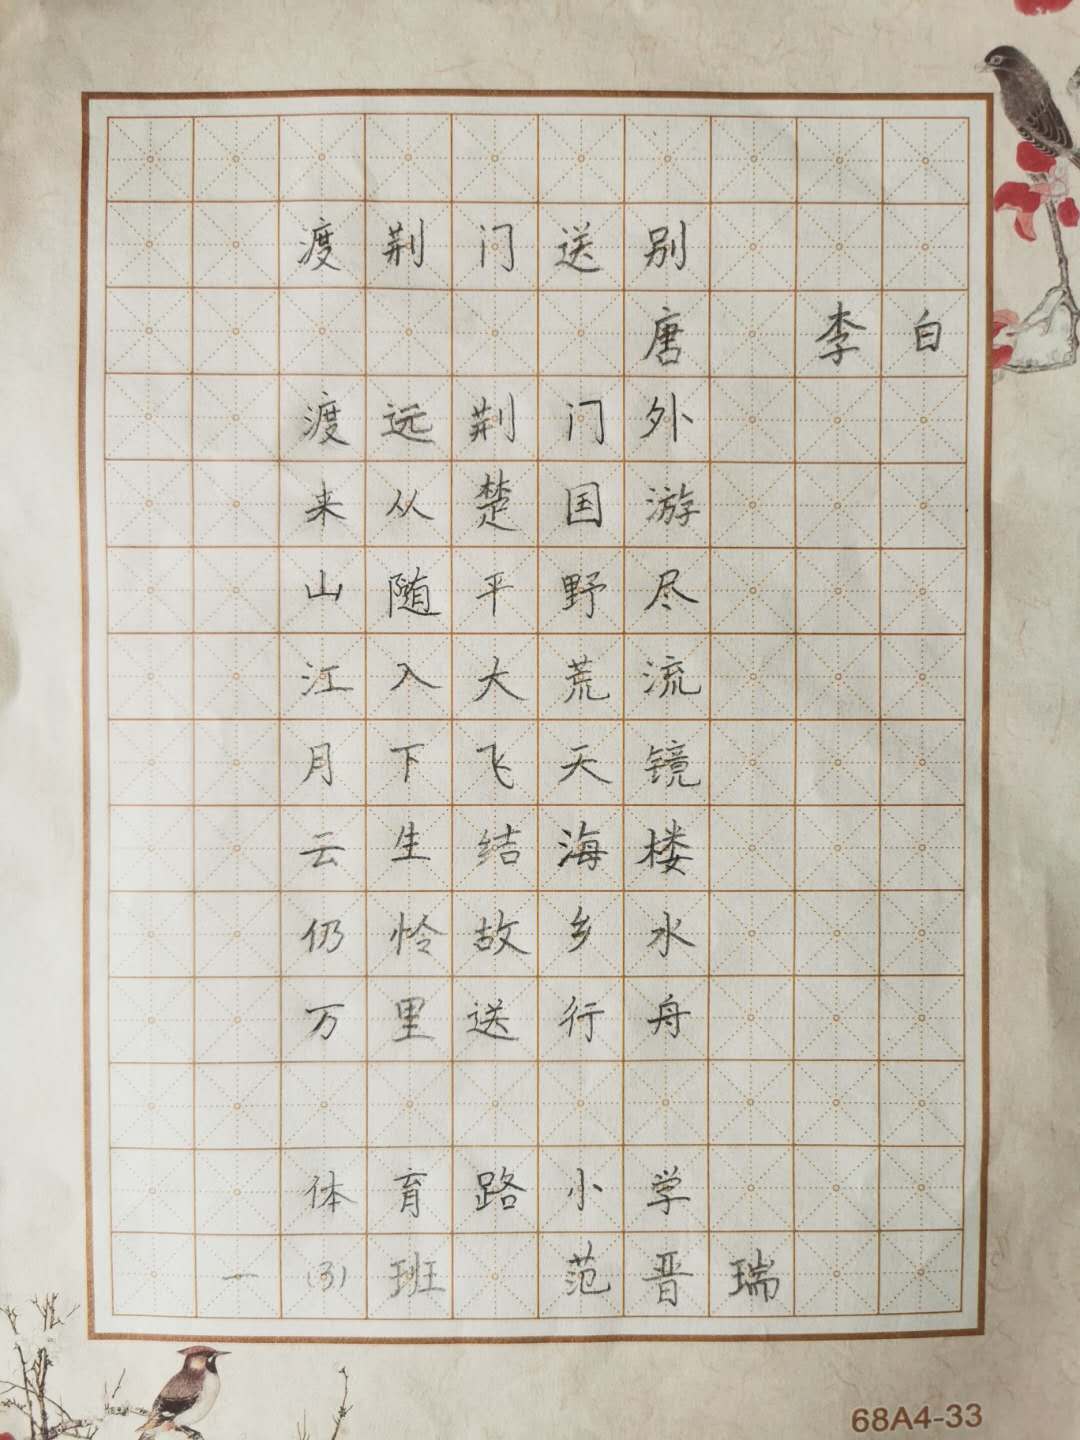 渡荆门送别
唐 李白
渡远荆门外
来从楚国游
山随平野尽
江入大荒流
月下飞天镜
云生结海楼
仍怜故乡水
万里送行舟
体育路小学
一(3)班 范晋瑞
68A4-33